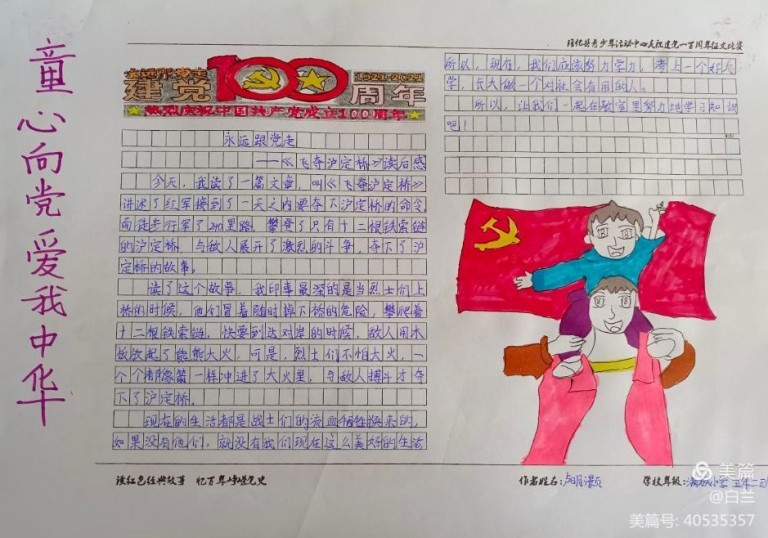 童心向党爱我中华
青少年活动中心庆祝建党一百周年征文比赛
建党100周年
1921-2021
★热烈庆祝中国共产党成立100周年★
永远跟党走
——《飞夺泸定桥》读后感
今天，我读了一篇文章，叫《飞夺泸定桥》
讲述了红军接到了一天之内要夺下泸定桥的命令
而徒步行军了240里路，攀登了只有十二根铁索链
的泸定桥，与敌人展开了激烈的斗争，夺下了泸
定桥的故事。
读了这个故事，我印象最深的是当烈士们上
桥的时候，他们冒着随时掉下桥的危险，攀爬着
十二根铁索链，快要到达对岸的时候，敌人用木
放火起了熊熊大火，可是，烈士们不怕大火，一
个个都像箭一样冲进了大火里，与敌人搏斗才夺
下了泸定桥。
现在的生活都是战士们的流血牺牲换来的，
如果没有他们，就没有我们现在这么美好的生活
所以，现在，我们应该努力学习，考上一个好大
学，长大做一个对社会有用的人。
所以，让我们一起在教室里努力地学习知识
吧！
读红色经典故事 忆百年峥嵘党史
作者姓名：
学校年级：
美篇
@白兰
美篇号: 40535357